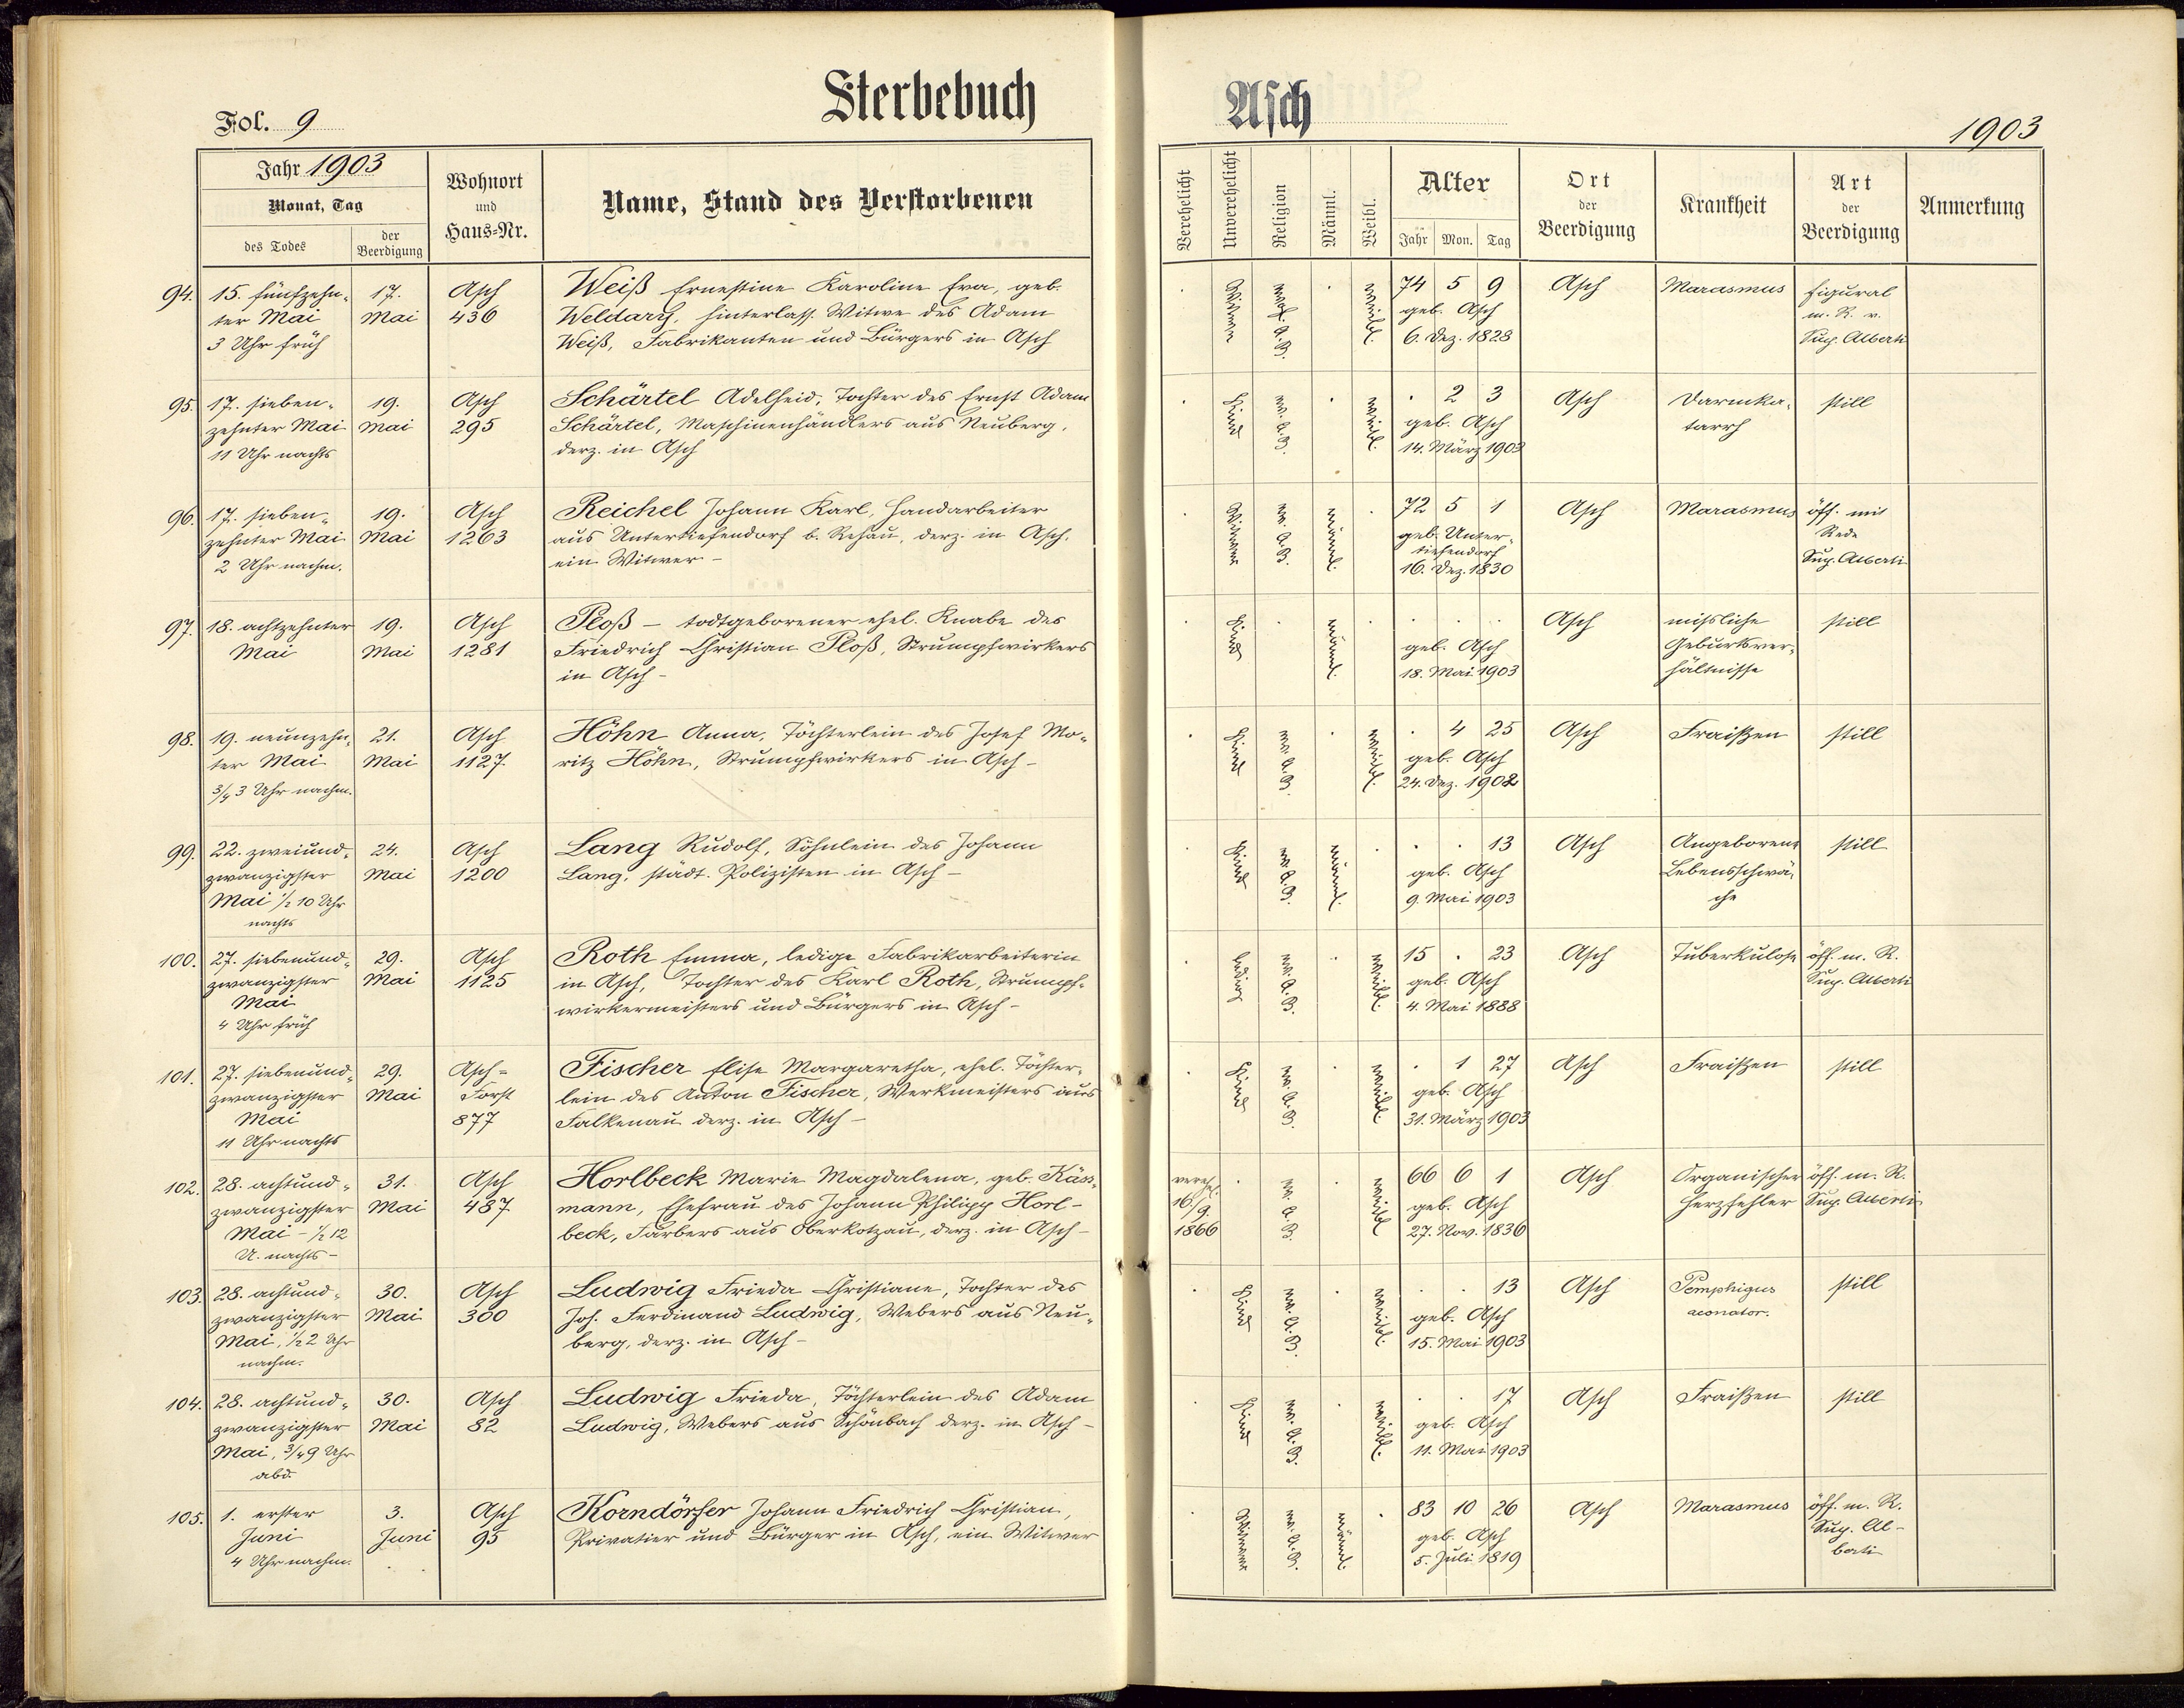 Sterbebuch
Asch
Fol. 9
1903
Jahr 1903
Monat, Tag
des Todes
der Beerdigung
Wohnort
und
Haus-Nr.
Name, Stand des Verstorbenen
Verehelicht
Unverehelicht
Religion
Männl.
Weibl.
Alter
Jahr Mon. Tag
Ort
der
Beerdigung
Krankheit
Art
der
Beerdigung
Anmerkung
94. 15. fünfzehn- 17. Asch Weiß Ernestine Karoline Eva, geb. Witwe evgl. A. B. weibl. 74 5 9 Asch Marasmus figural
ter Mai Mai 436 hinterlass. Witwe des Adam geb. Asch m. R. v.
3 Uhr früh Weiß, Fabrikanten und Bürgers in Asch 6. Dez. 1828 Sup. Alberti
95. 17. sieben- 19. Asch Schärtel Adelheid, Tochter des Ernst Adam Kind ev. A. B. weibl. 2 3 Asch Darmka- still
zehnter Mai Mai 295 Schärtel, Maschinenhändlers aus Neuberg, geb. Asch tarrh
11 Uhr nachts derz. in Asch 14. März 1903
96. 17. sieben- 19. Asch Reichel Johann Karl, Handarbeiter Witwer ev. A. B. männl. 72 5 1 Asch Marasmus öff. mit
zehnter Mai Mai 1263 aus Untertiefendorf b. Rehau, derz. in Asch, geb. Unter- Rede
2 Uhr nachm. ein Witwer – tiefendorf Sup. Alberti
16. Dez. 1830
97. 18. achtzehnter 19. Asch Ploß – todtgeborener ehel. Knabe des Kind männl. Asch missliche still
Mai Mai 1281 Friedrich Christian Ploß, Strumpfwirkers geb. Asch Geburtsver-
in Asch – 18. Mai 1903 hältnisse
98. 19. neunzehn- 21. Asch Höhn Anna, Töchterlein des Josef Mo- Kind ev. A. B. weibl. 4 25 Asch Fraißen still
ter Mai Mai 1127 ritz Höhn, Strumpfwirkers in Asch – geb. Asch
3/4 3 Uhr nachm. 24. Dez. 1902
99. 22. zweiund- 24. Asch Lang Rudolf, Söhnlein des Johann Kind ev. A. B. männl. 13 Asch Angeborene still
zwanzigster Mai 1200 Lang, städt. Polizisten in Asch – geb. Asch Lebensschwä-
Mai 1/2 10 Uhr 9. Mai 1903 che
nachts
100. 27. siebenund- 29. Asch Roth Emma, ledige Fabrikarbeiterin ledig ev. A. B. weibl. 15 . 23 Asch Tuberkulose öff. m. R.
zwanzigster Mai 1125 in Asch, Tochter des Karl Roth, Strumpf- geb. Asch Sup. Alberti
Mai wirkermeisters und Bürgers in Asch – 4. Mai 1888
4 Uhr früh
101. 27. siebenund- 29. Asch- Fischer Elise Margaretha, ehel. Töchter- Kind ev. A. B. weibl. 1 27 Asch Fraißen still
zwanzigster Mai Forst lein des Anton Fischer, Werkmeisters aus geb. Asch
Mai 877 Falkenau derz. in Asch – 31. März 1903
11 Uhr nachts
102. 28. achtund- 31. Asch Horlbeck Marie Magdalena, geb. Käss- verehel. ev. A. B. weibl. 66 6 1 Asch Organischer öff. m. R.
zwanzigster Mai 487 mann, Ehefrau des Johann Philipp Horl- 16/9. geb. Asch Herzfehler Sup. Alberti
Mai – 1/2 12 beck, Färbers aus Oberkotzau, derz. in Asch – 1866 27. Nov. 1836
U. nachts –
103. 28. achtund- 30. Asch Ludwig Frieda Christiane, Tochter des Kind ev. A. B. weibl. 13 Asch Pemphigus still
zwanzigster Mai 300 Joh. Ferdinand Ludwig, Webers aus Neu- geb. Asch
Mai, 1/2 2 Uhr berg, derz. in Asch – 15. Mai 1903
nachm.
104. 28. achtund- 30. Asch Ludwig Frieda, Töchterlein des Adam Kind ev. A. B. weibl. 17 Asch Fraißen still
zwanzigster Mai 82 Ludwig, Webers aus Schönbach derz. in Asch – geb. Asch
Mai, 3/4 9 Uhr 11. Mai 1903
abd.
105. 1. erster 3. Asch Korndörfer Johann Friedrich Christian, Witwer ev. A. B. männl. 83 10 26 Asch Marasmus öff. m. R.
Juni Juni 95 Privatier und Bürger in Asch, ein Witwer geb. Asch Sup. Al-
4 Uhr nachm. 5. Juli 1819 berti